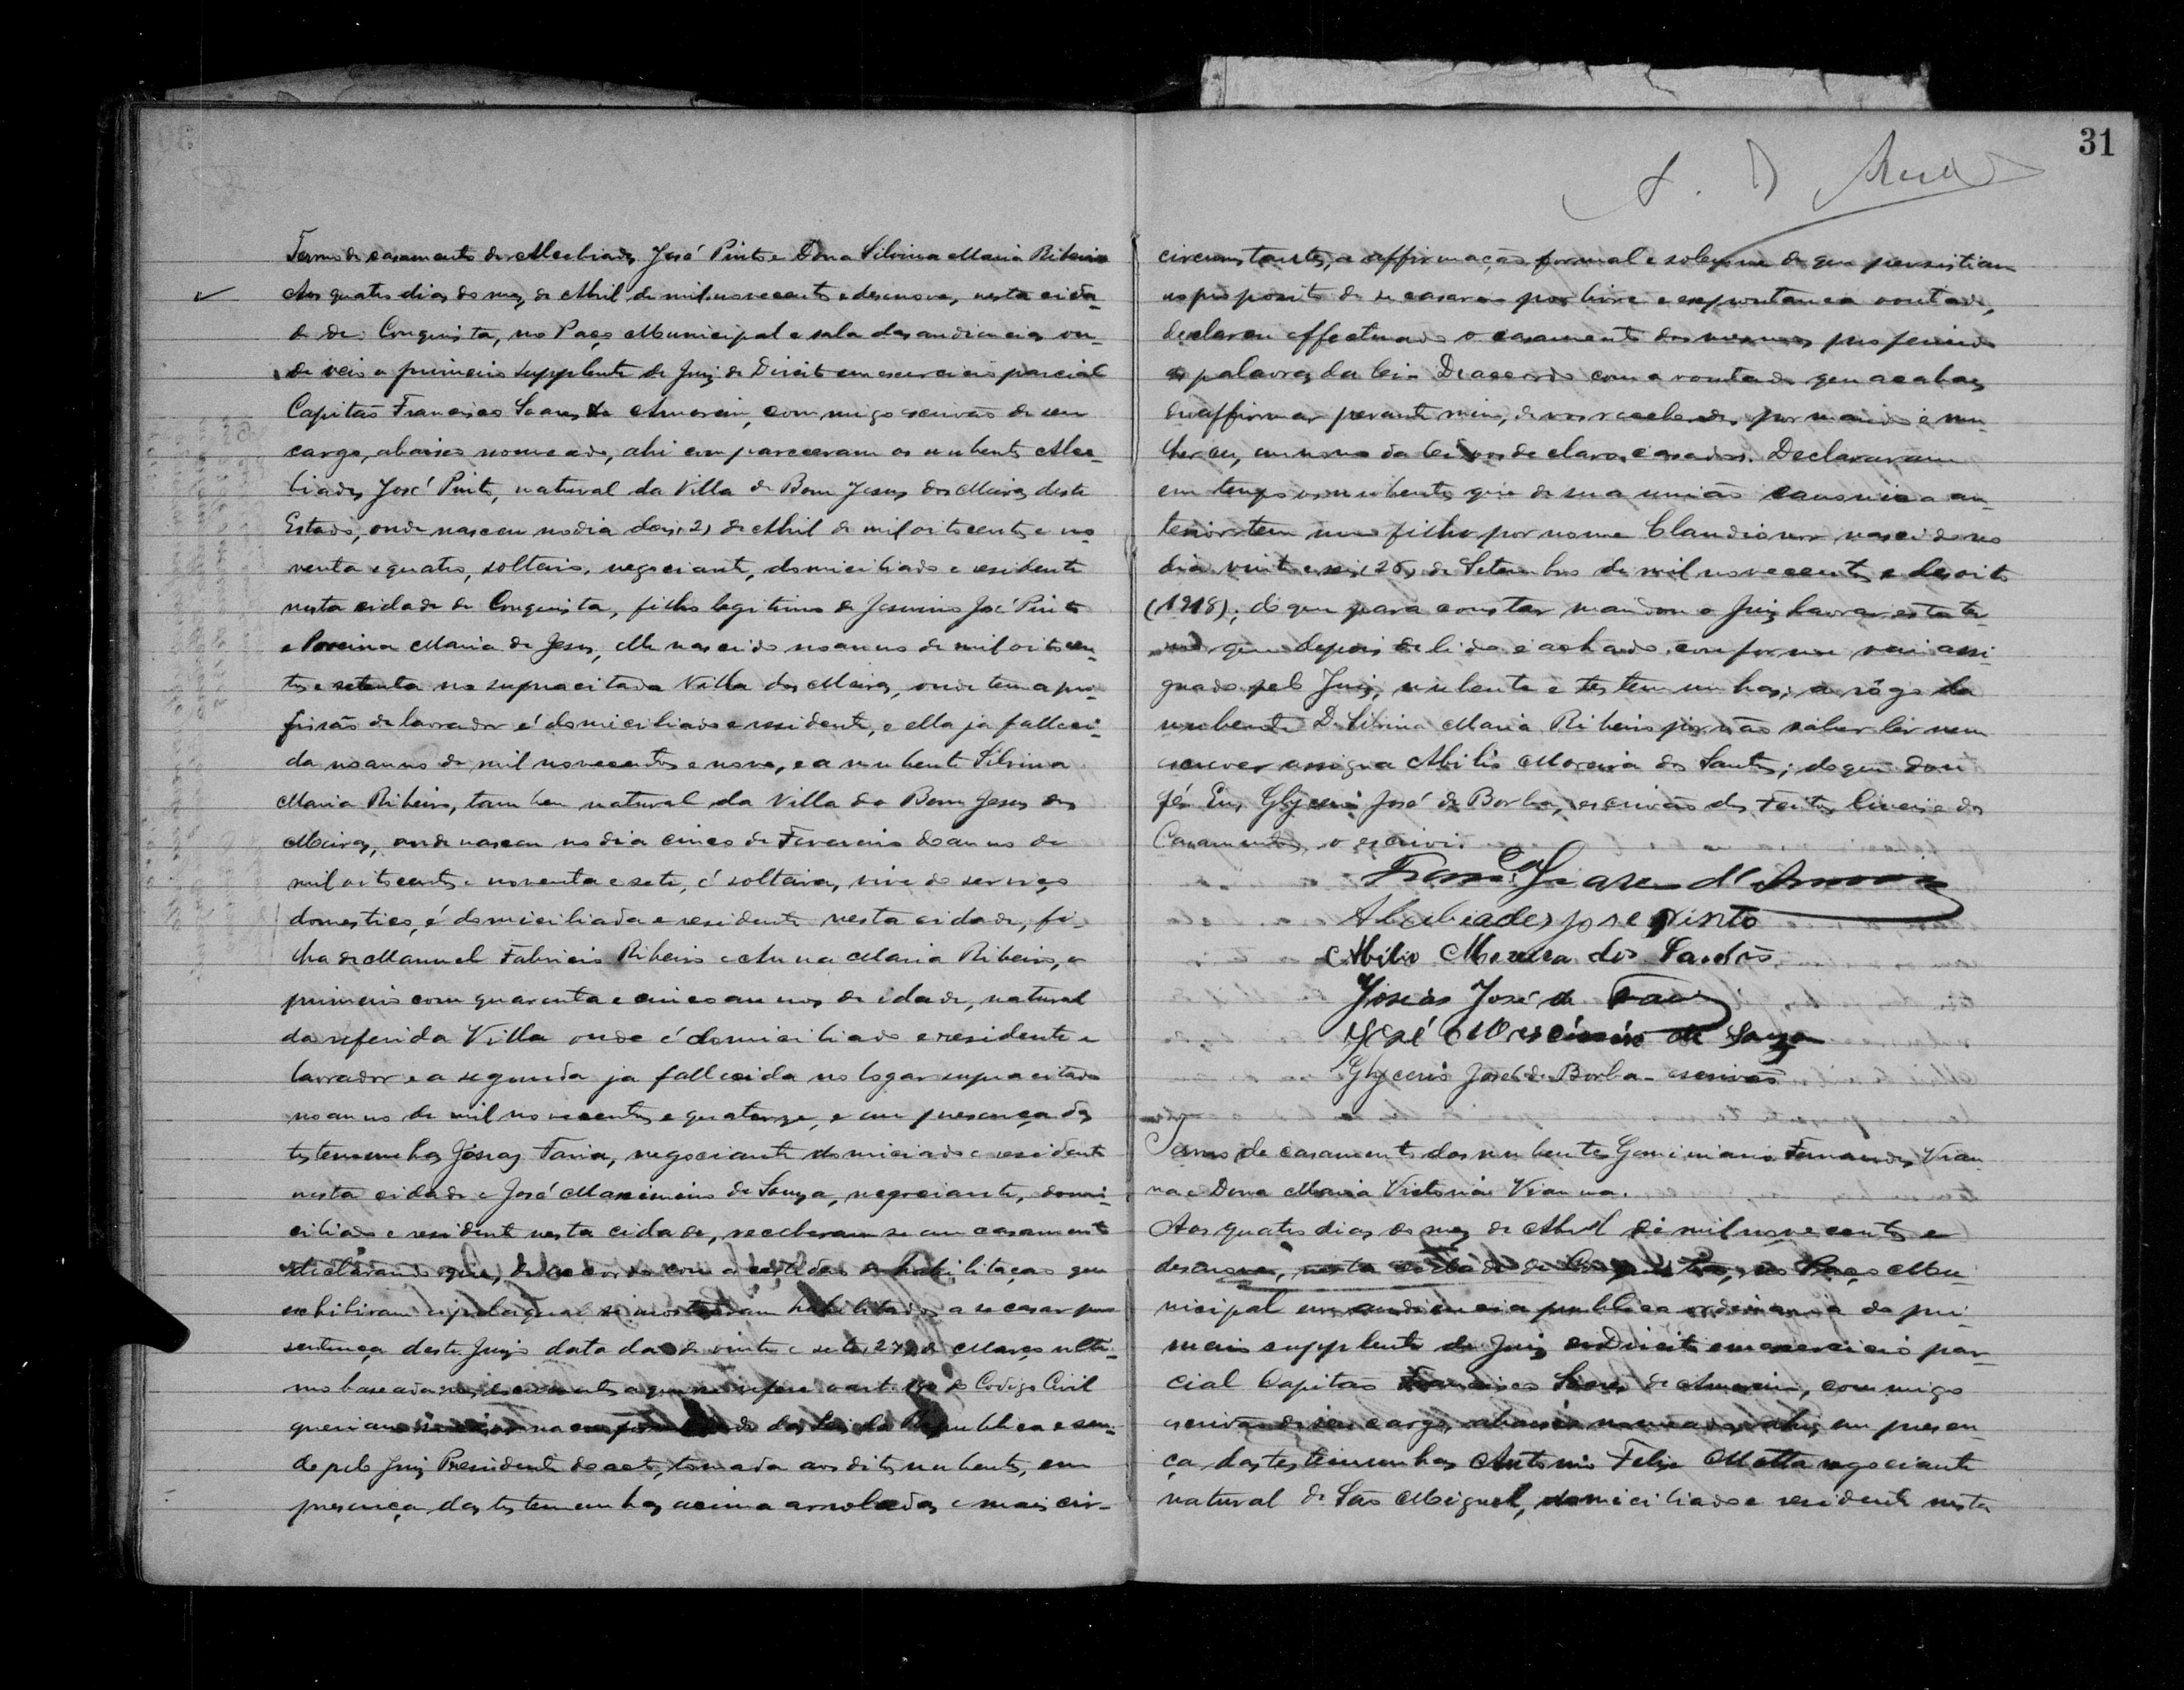 31
Termo de casamento de Alcebiades José Pinto e Dona Silvina Maria Ribeiro
Aos quatro dias do mez de Abril de mil novecentos e desenove, nesta cida-
de de Conquista, no Paço Municipal e sala das audiencias on-
de veio o primeiro supplente de Juiz de Direito em exercicio parcial
Capitão Francisco Soares de Amorim, commigo escrivão de seu
cargo, abaixo nomeado, ahi compareceram os nubentes Alce-
biades José Pinto, natural da Villa de Bom Jesus dos Meiras deste
Estado, onde nasceu no dia dois (2) de Abril de mil oitocentos e no-
venta e quatro, solteiro, negociante, domiciliado e residente
nesta cidade de Conquista, filho legitimo de Jesuino José Pinto
e Maria de Jesus, elle nascido no anno de mil oitocen-
tos e setenta na supracitada Villa dos Meiras, onde tem a pro-
fissão de lavrador é domiciliado e residente, e ella ja falleci-
da no anno de mil novecentos e nove, e a nubente Silvina
Maria Ribeiro, tambem natural da Villa do Bom Jesus dos
Meiras, onde nasceu no dia cinco de Fevereiro do anno de
mil oitocentos e noventa e sete, é solteira, vive do serviço
domestico, é domiciliada e residente nesta cidade, fi-
lha de Manuel Fabricio Ribeiro e Anna Maria Ribeiro, o
primeiro com quarenta e cinco annos de idade, natural
da referida Villa onde é domiciliado e residente e
lavrador e a segunda ja fallecida no logar supracitado
no anno de mil novecentos e quatorze, e em presença das
testemunhas Josias Faria, negociante domiciado e residente
nesta cidade e José Maximino de Souza, negociante, domi-
ciliado e residente nesta cidade, receberam-se em casamento
declarando que, de accordo com a certidão de habilitação que
exhibiram e pela qual se mostraram habilitados a se casar por
sentença deste Juizo datada de vinte e sete (27) de Março ulti-
mo baseada nos documentos a que se refere o art. 180 do Codigo Civil
queriam se casar na conformidade das Leis da Republica e sen-
do pelo Juiz Presidente do acto, tomada aos ditos nubentes, em
presença das testemunhas acima arroladas e mais cir-
circumstantes, a affirmação formal e solemne de que persistiam
no proposito de se casarem por livre e espontanea vontade,
declarou effectuado o casamento dos mesmos proferindo
as palavras da lei - De accordo com a vontade que acabaes
de affirmar perante mim, de vos receberdes por marido e mu-
lher eu, em nome da lei vos declaro casados. Declararam
em tempo os nubentes que de sua união canonica an-
terior tem um filho por nome Claudionor nascido no
dia vinte e seis (26) de Setembro de mil novecentos e dezoito
(1918); do que para constar mandou o Juiz lavrar este ter-
mo que depois de lido e achado conforme vai assi-
gnado pelo Juiz, nubente e testemunhas, a rôgo da
nubente D. Silvina Maria Ribeiro por não saber ler nem
escrever assigna Abilio Moreira dos Santos; do que dou
fé. Eu, Glycerio José de Borba, escrivão dos Feitos Civeis e dos
Casamentos, o escrivi.
Franco. Soares d'Amorim
Alcibiades jose pinto
Abilio Moreira dos Santos
Josias José de Faria
José Maximino de Souza
Glycerio José de Borba - escrivão
Termo de casamento dos nubentes Geminiano Fernandes Vian-
na e Dona Maria Victoria Vianna.
Aos quatro dias do mez de Abril de mil novecentos e
desenove, nesta cidade de Conquista, no Paço Mu-
nicipal em audiencia publica ordinaria do pri-
meiro supplente do Juiz de Direito em exercicio par-
cial Capitão Francisco Soares de Amorim, commigo
escrivão de seu cargo, abaixo nomeado, ahi, em presen-
ça das testemunhas Antonio Felix Motta negociante
natural de São Miguel, domiciliado e residente nesta